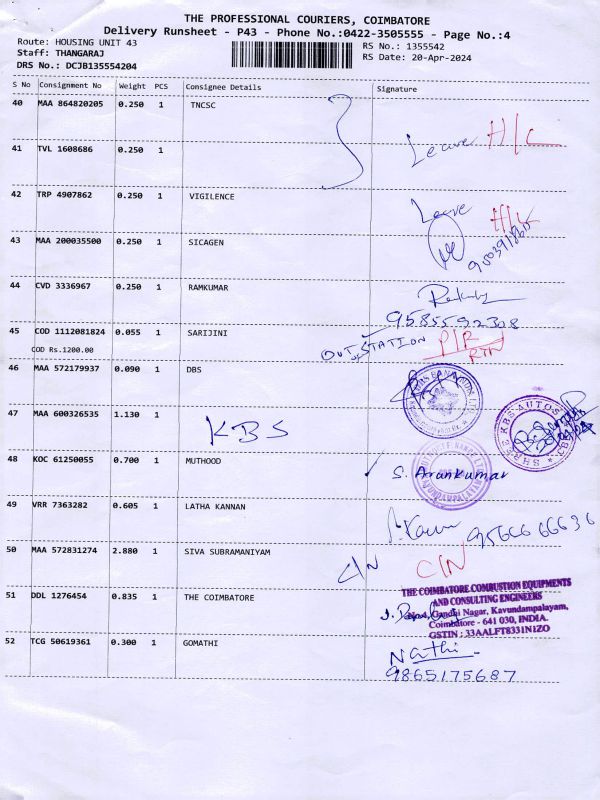 THE PROFESSIONAL COURIERS, COIMBATORE
Delivery Runsheet - P43 - Phone No.:0422-3505555 - Page No.:4
Route: HOUSING UNIT 43
Staff: THANGARAJ
DRS No.: DCJB135554204
RS No.: 1355542
RS Date: 20-Apr-2024
S No Consignment No Weight PCS Consignee Details Signature
40 MAA 864820205 0.250 1 TNCSC
Leave H/L
41 TVL 1608686 0.250 1
42 TRP 4907862 0.250 1 VIGILENCE
Leave H/L
43 MAA 200035500 0.250 1 SICAGEN
44 CVD 3336967 0.250 1 RAMKUMAR
9585592308
45 COD 1112081824 0.055 1 SARIJINI
COD Rs.1200.00
OUT OF STATION P/R
RTN
46 MAA 572179937 0.090 1 DBS
47 MAA 600326535 1.130 1 KBS
SHREE KBS AUTOS
48 KOC 61250055 0.700 1 MUTHOOD
S. Arunkumar
49 VRR 7363282 0.605 1 LATHA KANNAN
9566666636
50 MAA 572831274 2.880 1 SIVA SUBRAMANIYAM
C/N C/N
51 DDL 1276454 0.835 1 THE COIMBATORE
THE COIMBATORE COMBUSTION EQUIPMENTS
AND CONSULTING ENGINEERS
No.4, Gandhi Nagar, Kavundampalayam,
Coimbatore - 641 030, INDIA.
GSTIN : 33AALFT8331N1ZO
52 TCG 50619361 0.300 1 GOMATHI
Nathi
9865175687